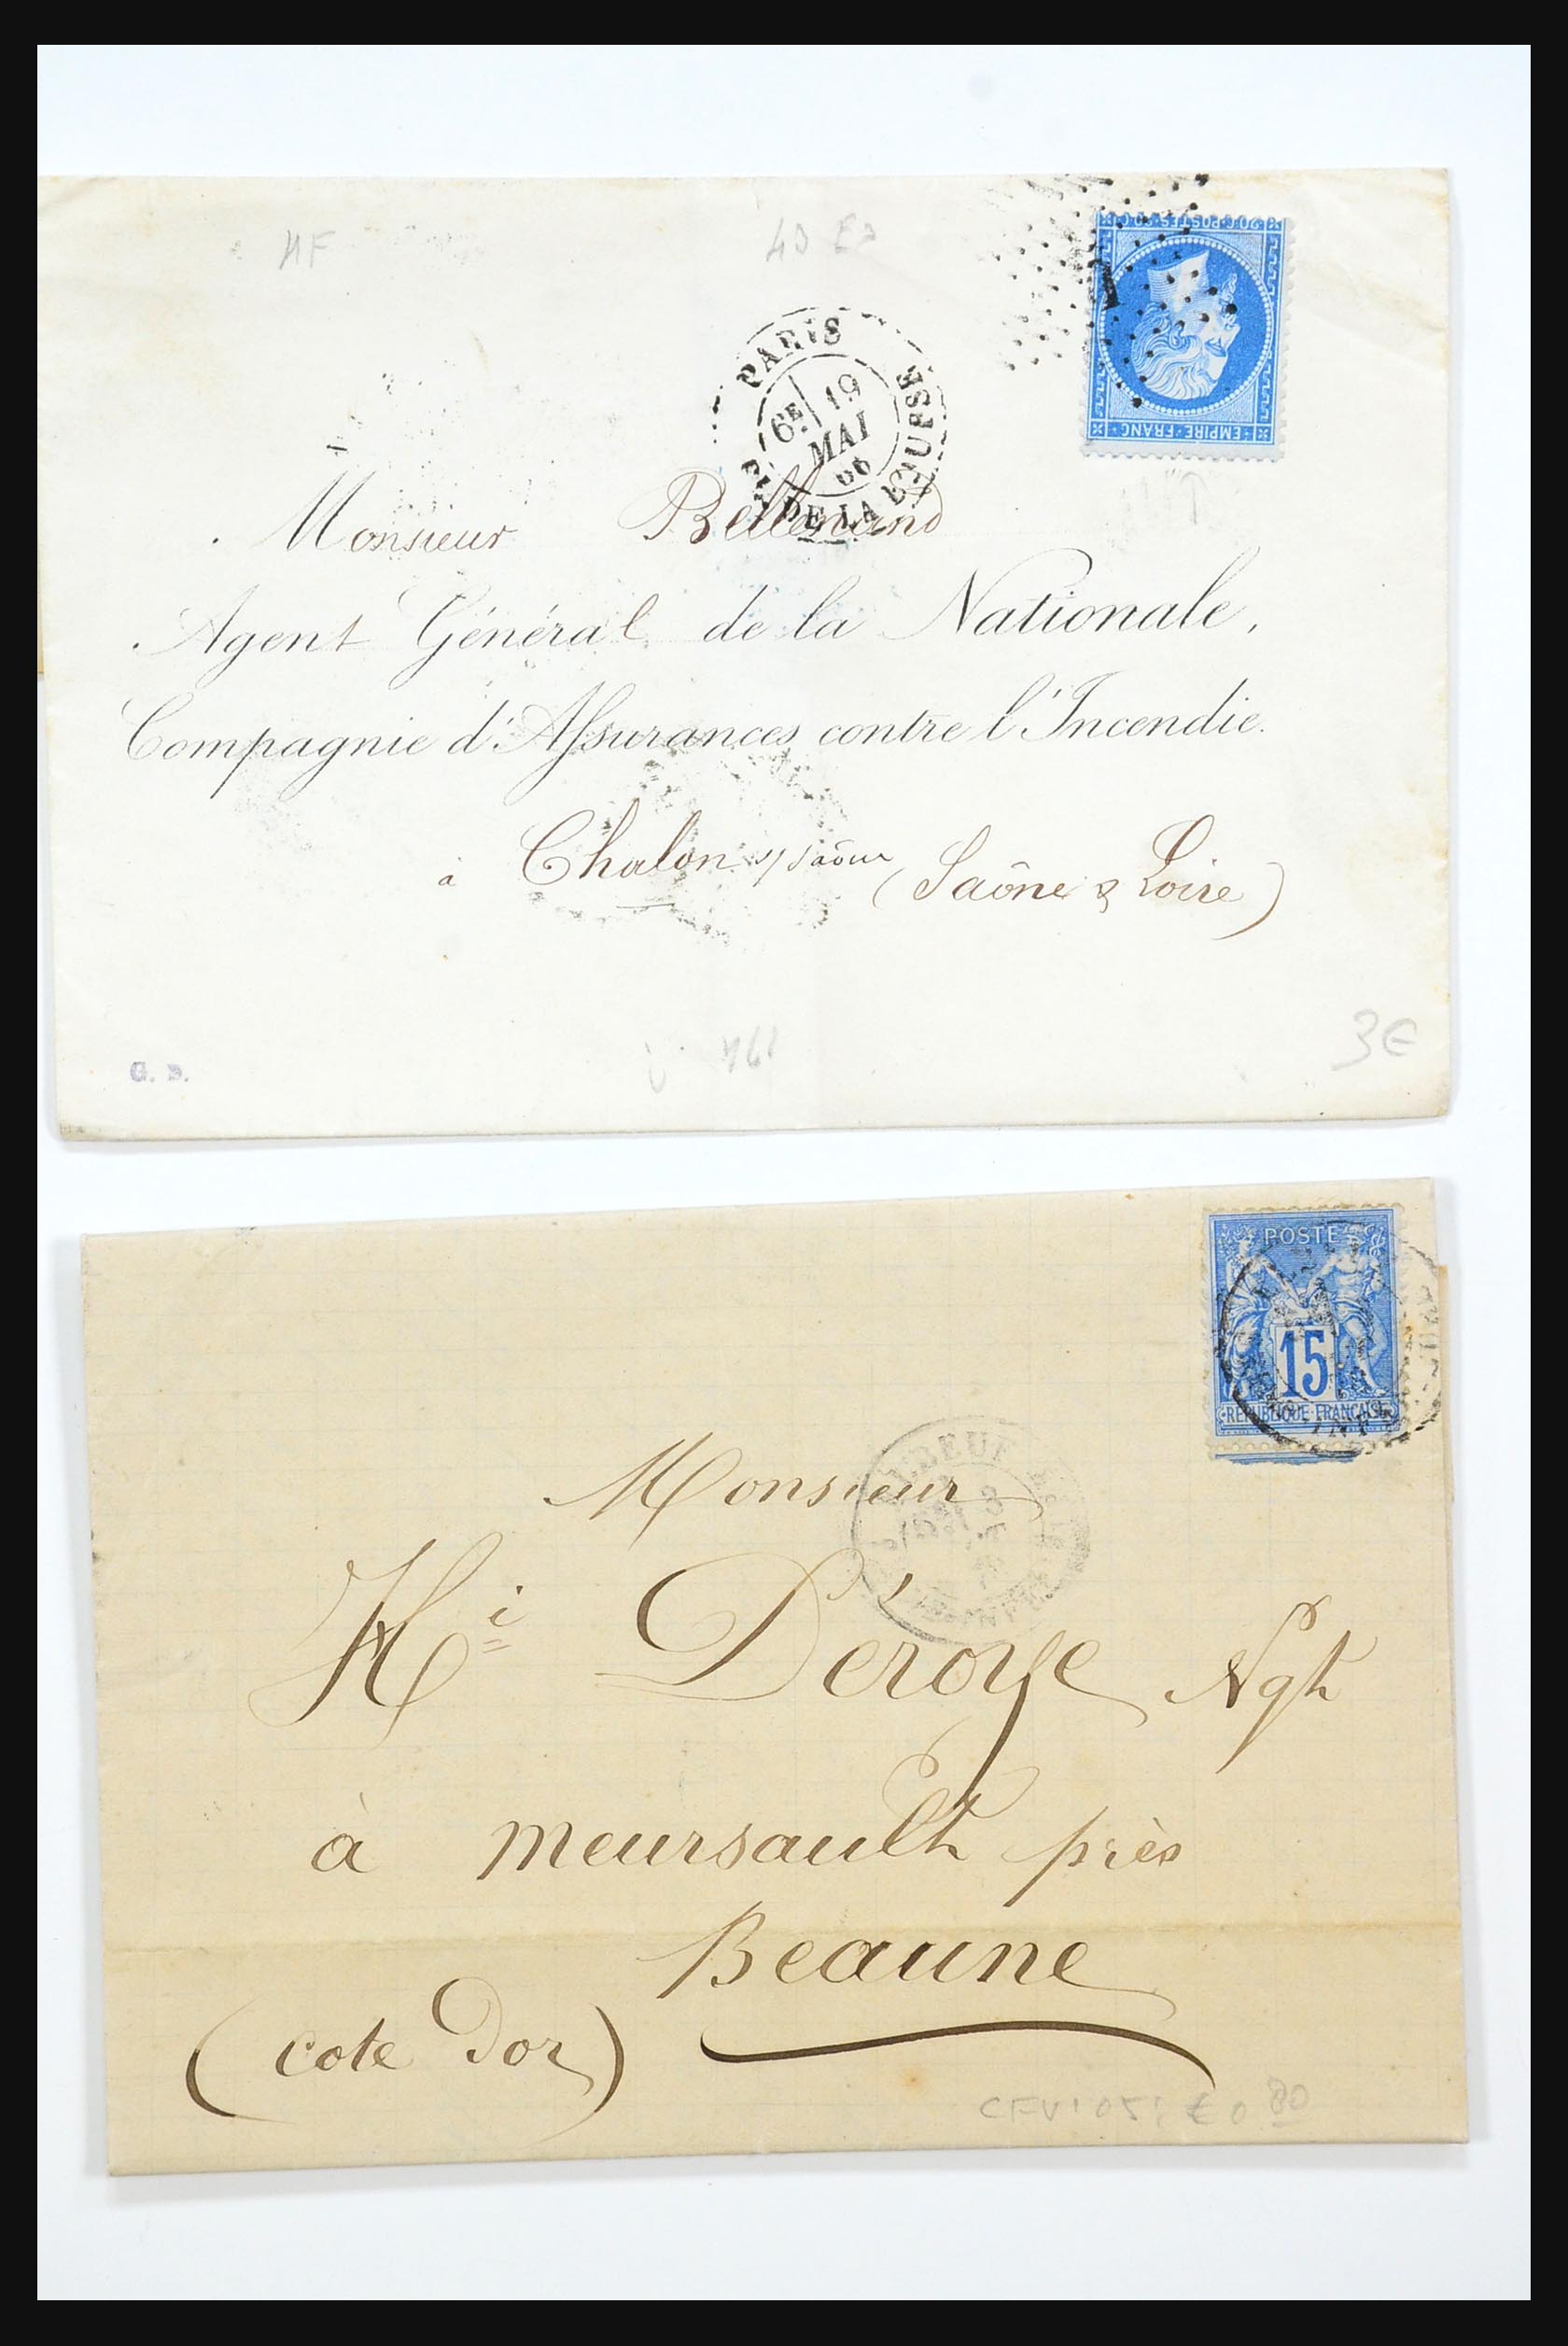 20 C POSTES 20 C
EMPIRE FRANC
1
PARIS
6E 19
MAI
66
PL. DE LA BOURSE
Monsieur Bellenand
Agent Général de la Nationale,
Compagnie d'Assurances contre l'Incendie.
à Chalon s/ Saône (Saône & Loire)
G. D.
3€
POSTE
15
REPUBLIQUE FRANCAISE
ELBEUF
Monsieur
Hi Déroye Ngt
à Meursault près
Beaune
(cote Dor)
€ 0 80